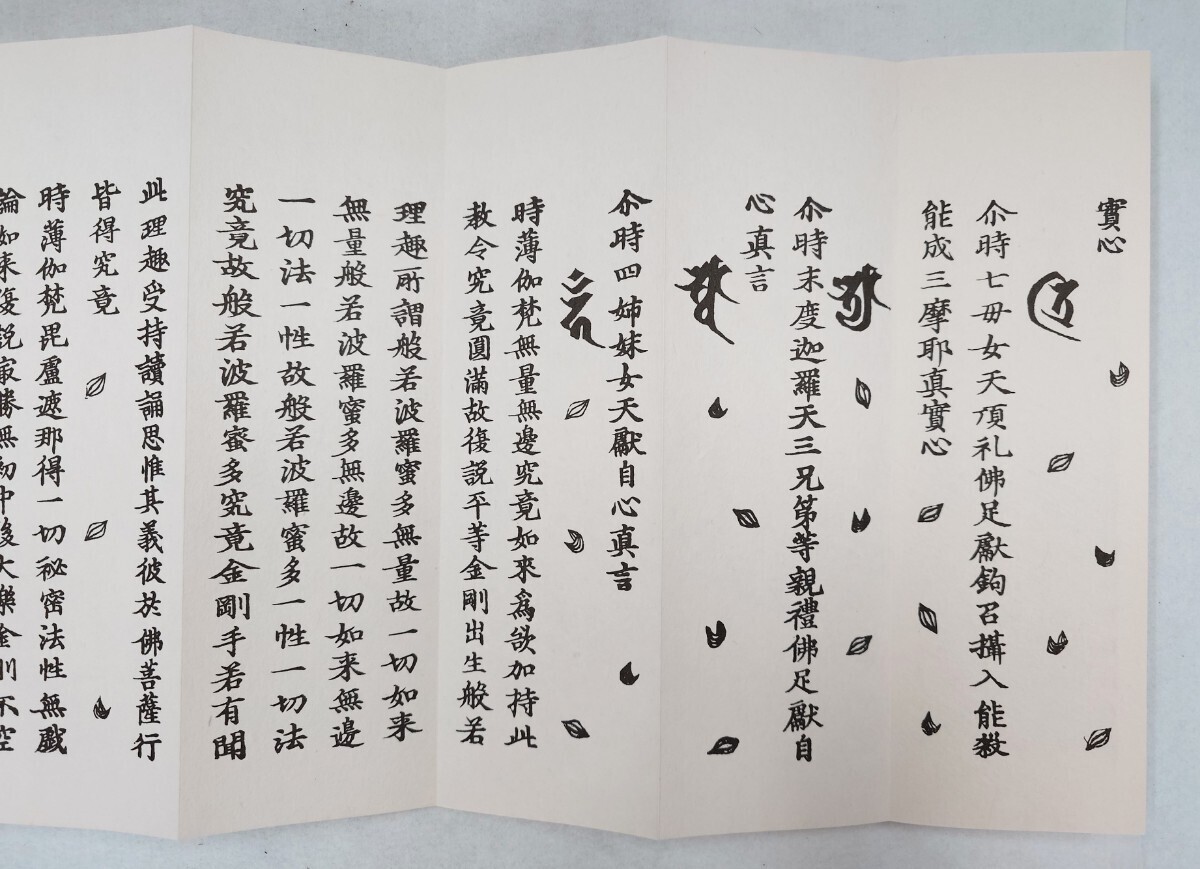 實心
𑖝𑖿𑖨𑖰
尒時七毋女天頂礼佛足獻鉤召攝入能殺
能成三摩耶真實心
尒時末度迦羅天三兄第等親禮佛足獻自
心真言
尒時四姉妹女天獻自心真言
時薄伽梵無量無邊究竟如來爲欲加持此
教令究竟圓滿故復説平等金剛出生般若
理趣所謂般若波羅蜜多無量故一切如来
無量般若波羅蜜多無邊故一切如来無邊
一切法一性故般若波羅蜜多一性一切法
究竟故般若波羅蜜多究竟金剛手若有聞
此理趣受持讀誦思惟其義彼於佛菩薩行
皆得究竟
時薄伽梵毘盧遮那得一切秘密法性無戲
論如来復説冣勝無初中後大樂金剛不空